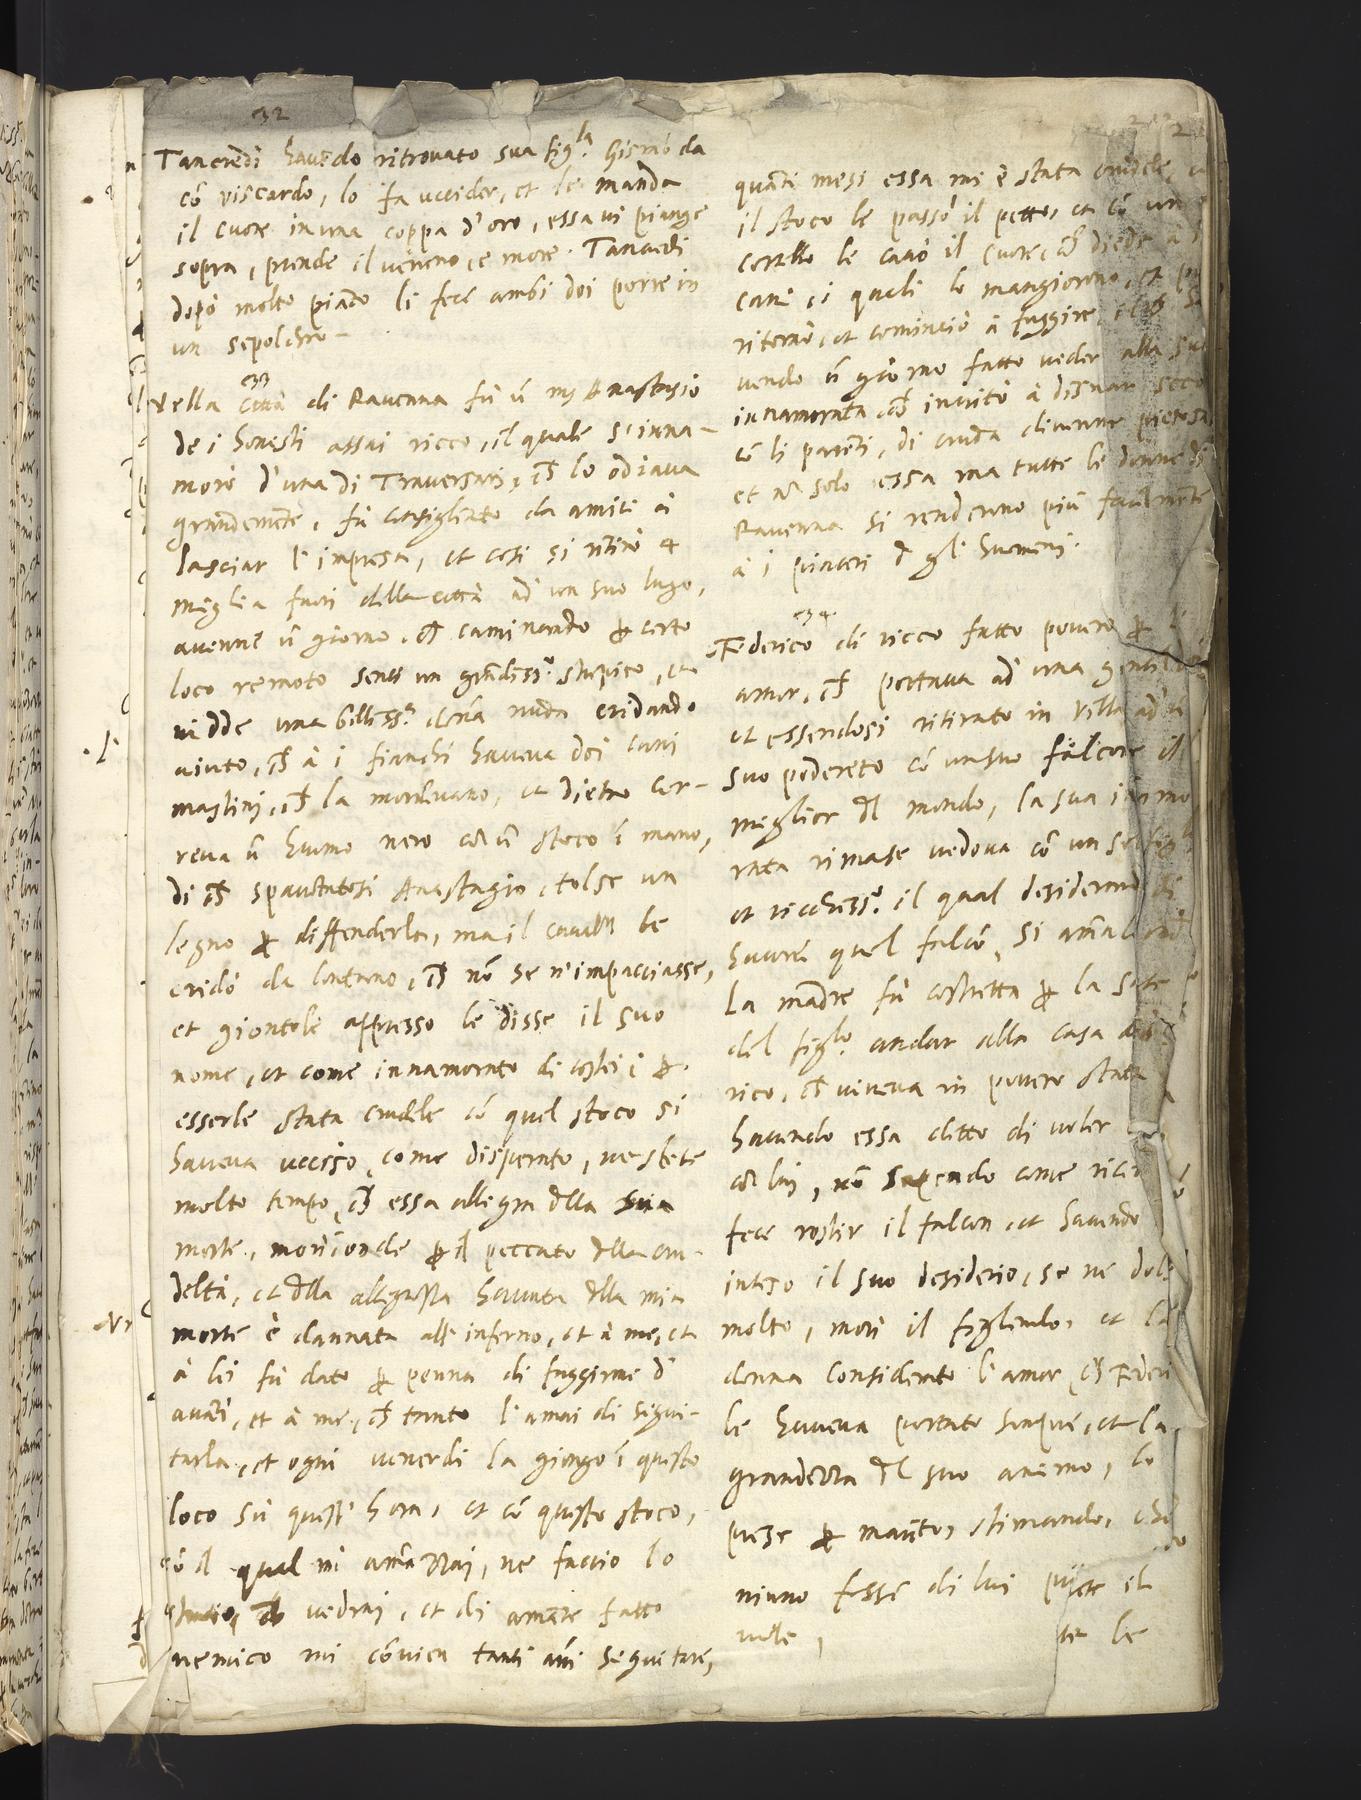 32
Tancredi havẽdo ritrovato sua figla. Gismõda
cõ viscardo, lo fa uccider, et le manda
il cuore in una coppa d'oro, essa vi piange
sopra, prende il veneno, e more. Tancredi
dopò molto piãto li fece ambi doi porre in
un sepolchro.
33
Nella Città di Ravenna fù ũ mr Anastasio
de i honesti assai ricco, il quale s'inna-
morò d'una di Traversari, ch lo odiava
grandemẽte, fù consigliato da amici à
lasciar l'impresa, et cosi si ritirò 4
miglia fuori della città ad un suo luogo,
avenne ũ giorno, ch caminando ꝑ certo
loco remoto senti un grãdissº. strepito, et
vidde una bellissª. dõna nuda cridando
aiuto, ch à i fianchi haveva doi cani
mastini, ch la mordevano, et dietro cor-
reva ũ huomo nero cõ ũ stoco ĩ mano,
di ch spavẽtatosi Anastagio, tolse un
legno ꝑ diffenderla, ma il cavallr le
cridò da lontano, ch nõ se n'impacciasse,
et giontole appresso le disse il suo
nome, et come innamorato di costei, ꝑ
esserle stata crudele cõ quel stoco si
haveva ucciso, come disperato, ne stete
molto tempo, ch essa allegra dlla sua
morte, morì onde ꝑ il peccato dlla cru-
deltà, et dlla allegrezza havuta dlla mia
morte è dannata all'inferno, et à me, et
à lei fù dato ꝑ penna di fuggirmi d'
avãti, et à me, ch tanto l'amai di segui-
tarla, et ogni venerdi la giongo ĩ questo
loco sù quest'hora, et cõ questo stoco,
cõ il qual mi amazzai, ne faccio lo
vedrai, et di amãte fatto
nemico mi cõvien tanti ãni seguitare,
quãti mesi essa mi è stata crudele,
il stoco le passò il petto, et cõ un
cortello le cavò il cuore, ch diede à
cani, i quali lo mangiorono, et
ritornò, et cominciò à fuggire,
vendo ũ giorno fatto veder alla sua
innamorata ch invitò à disnar seco
cõ li parẽti, di cruda divenne pietosa
et nõ solo essa ma tutte le donne di
Ravenna si renderono più facilmẽte
à i piaceri d gli huomini.
34.
Federico di ricco fatto povero ꝑ
amor, ch portava ad una gentil
et essendosi ritirato in Villa ad ũ
suo poderetto cõ un suo falcone il
meglior dl mondo, la sua inamo
rata rimase vedova cõ un sol figlo
et ricchissº. il qual desiderando di
havere quel falcõ, si amalò
La madre fù costretta ꝑ la
del figlo. andar alla casa di
rico, ch viveva in povero stato
havendo essa ditto di voler
cõ lui, nõ sapendo come
fece rostir il falcon, et havendo
inteso il suo desiderio, se ne dolse
molto, morì il figliuolo, et la
donna considerato l'amor, ch Federi
le haveva portato sempre, et la
grandezza dl suo animo, lo
prese ꝑ marito, stimando, che
niuno fosse di lui